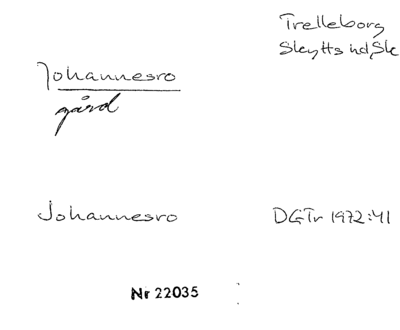 Trelleborg
Skytts hd, Sk
Johannesro
gård
Johannesro
DGTr 1972:41
Nr 22035